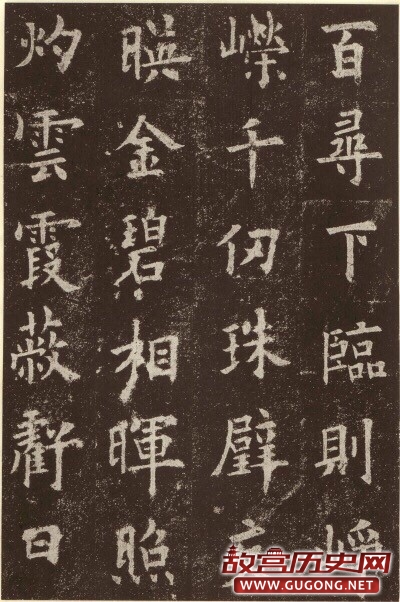 百尋下臨則崢
嶸千仞珠壁交
暎金碧相暉照
灼雲霞蔽虧日
故宫历史网
WWW.GUGONG.NET